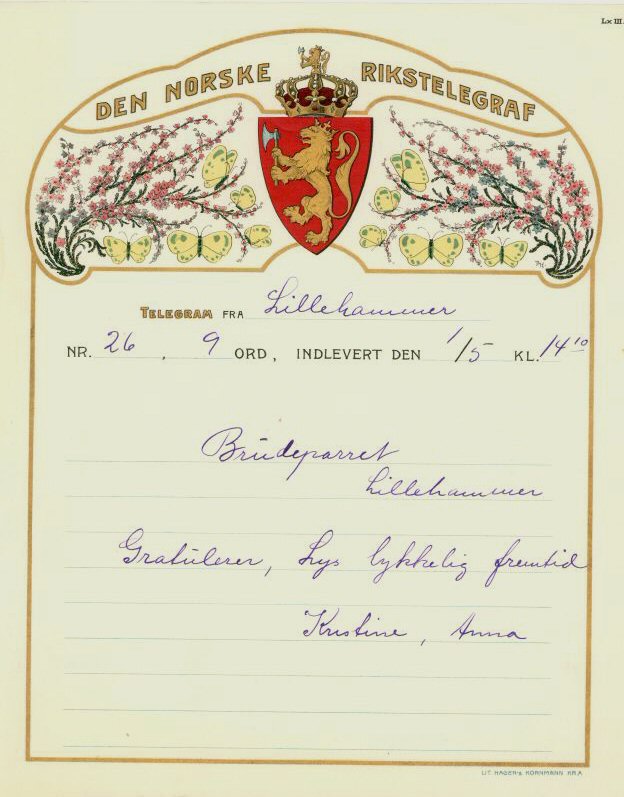 Lx III.
DEN NORSKE RIKSTELEGRAF
TELEGRAM FRA Lillehammer
NR. 26, 9 ORD, INDLEVERT DEN 1/5 KL. 14¹⁰
Brudeparret
Lillehammer
Gratulerer, Lys lykkelig fremtid
Kristine, Anna
LIT. HAGEN & KORNMANN KRA